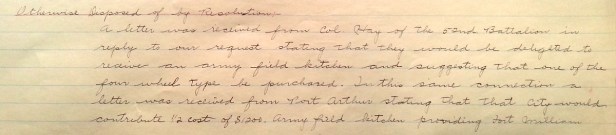 Otherwise Disposed of by Resolution;
A letter was received from Col. Hay of the 52nd Battalion in
reply to our request stating that they would be delighted to
receive an army field kitchen and suggesting that one of the
four wheel type be purchased. In this same connection a
letter was received from Port Arthur stating that that City would
contribute 1/2 cost of $1,200. Army field kitchen providing Fort William